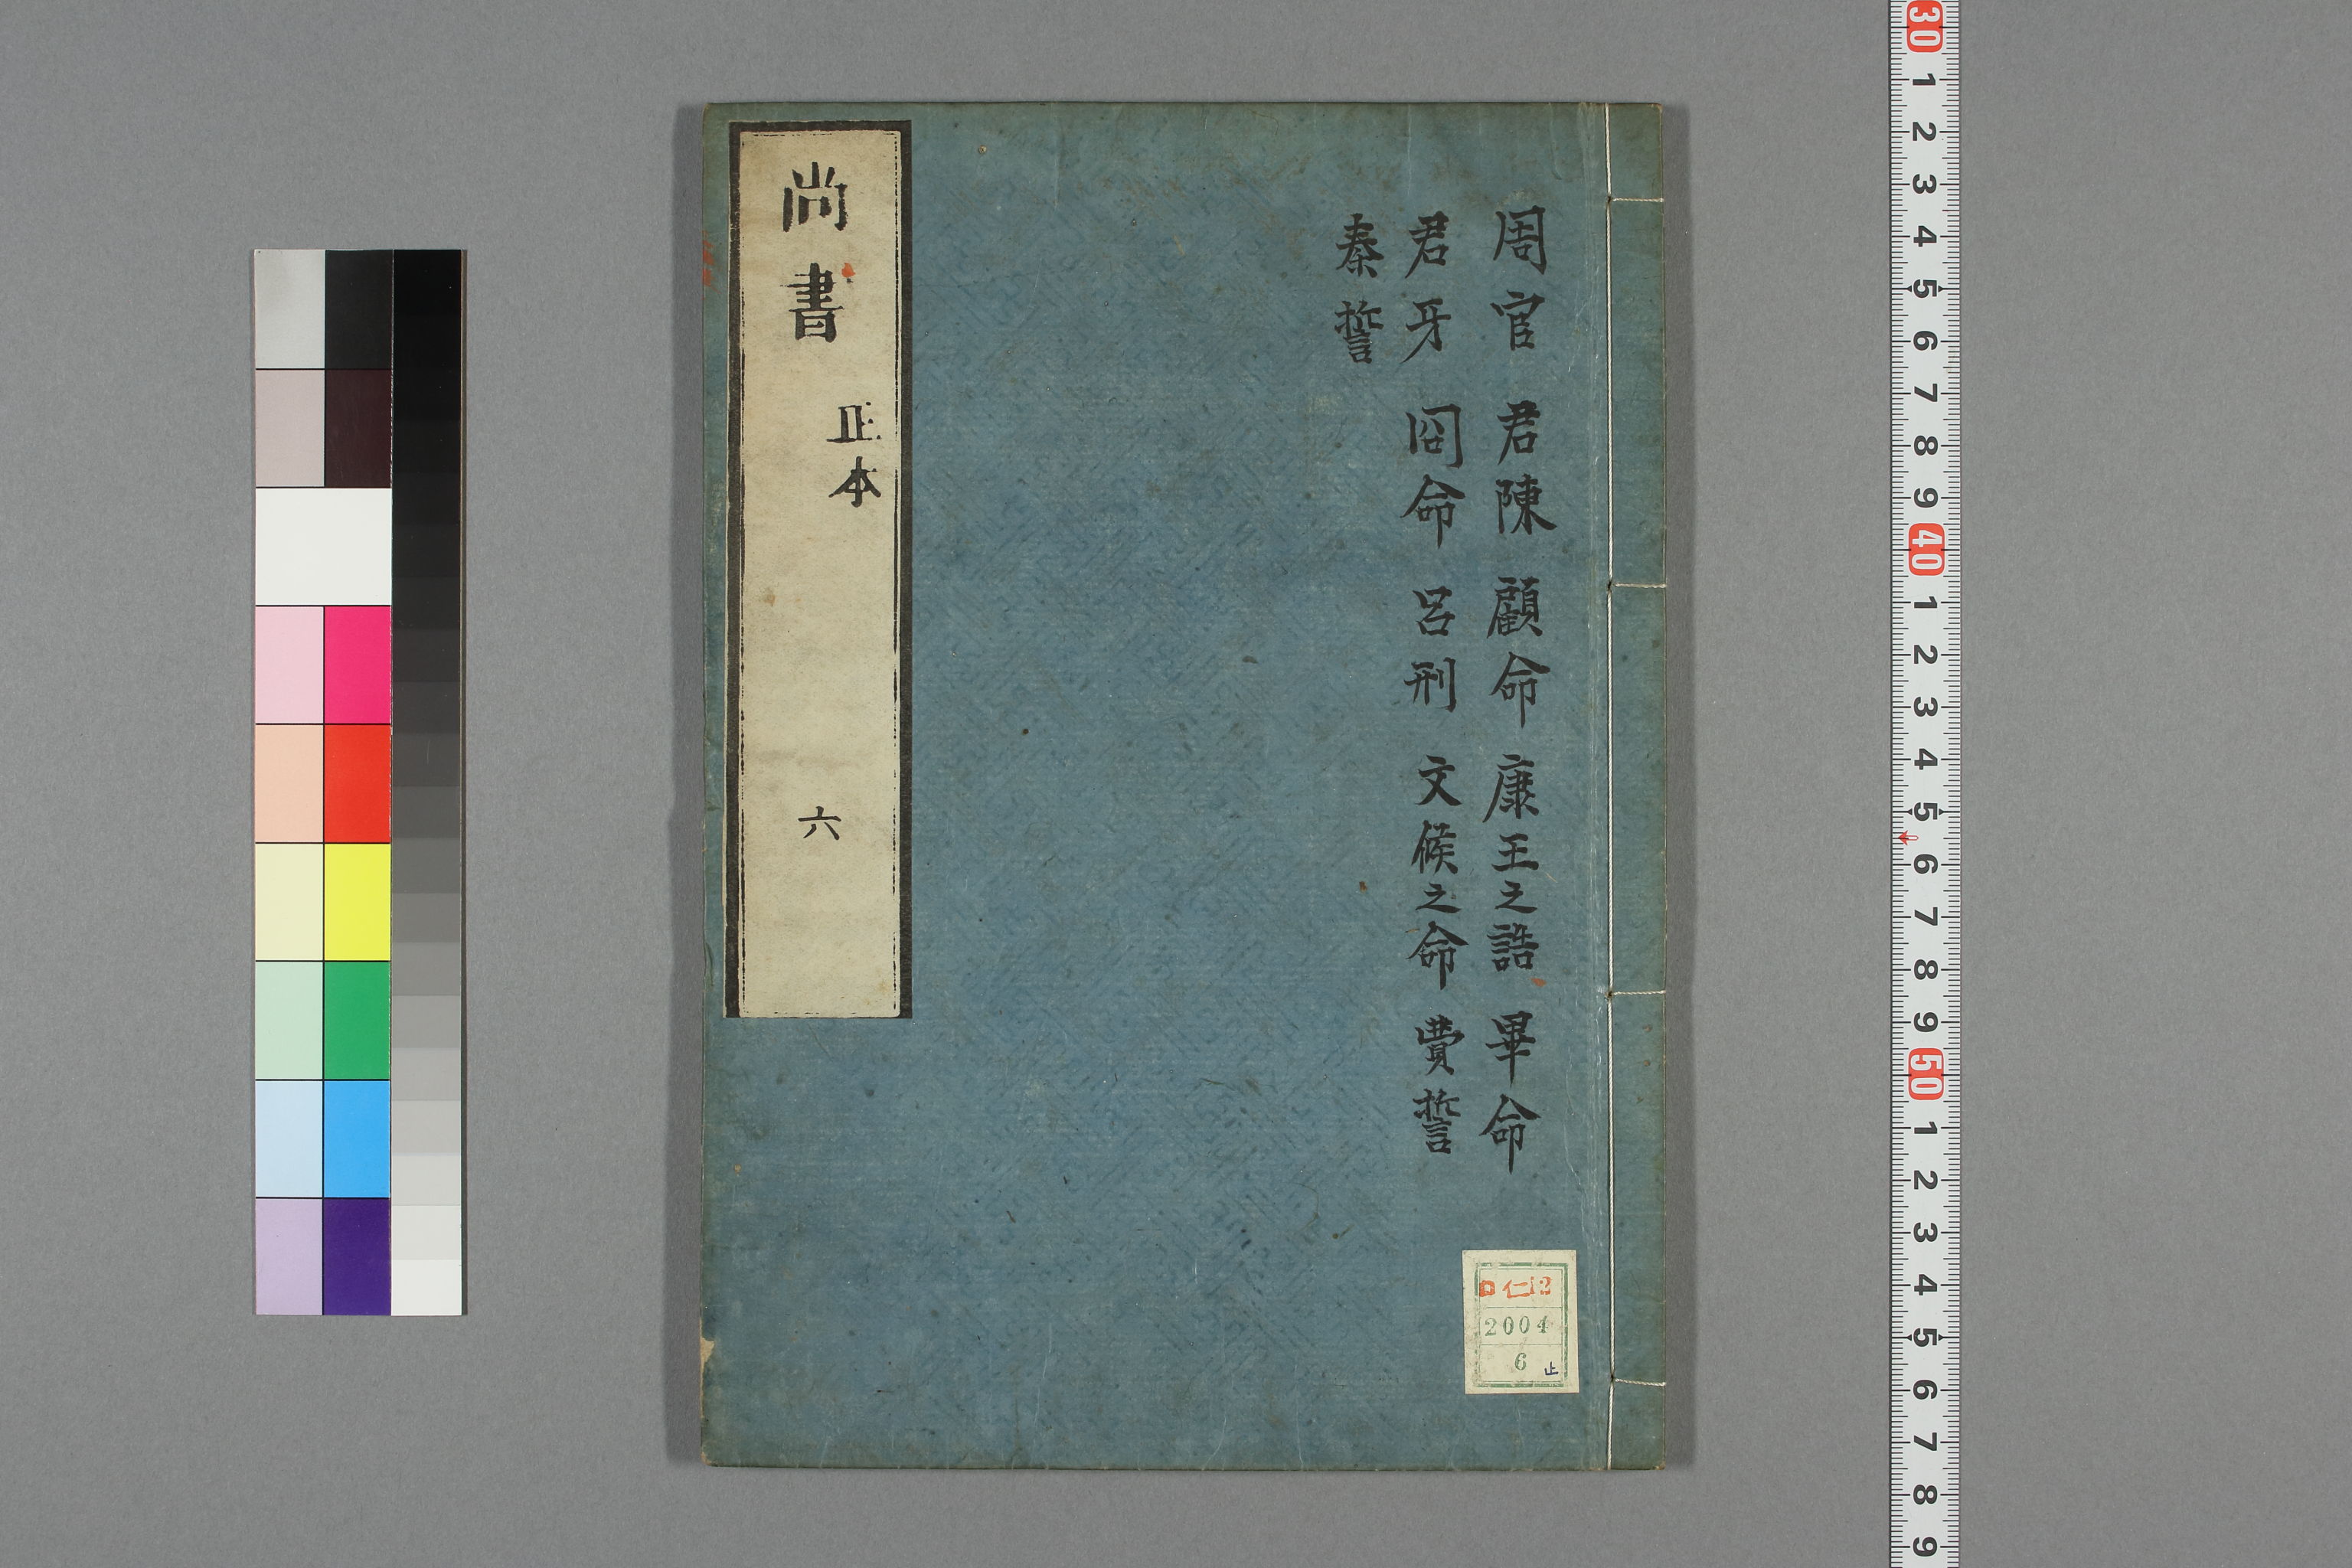 周官 君陳 顧命 康王之誥 畢命
君牙 冏命 呂刑 文候之命 費誓
秦誓
尚書 正本 六
口仁12
2004
6 止
30 1 2 3 4 5 6 7 8 9 40 1 2 3 4 5 6 7 8 9 50 1 2 3 4 5 6 7 8 9